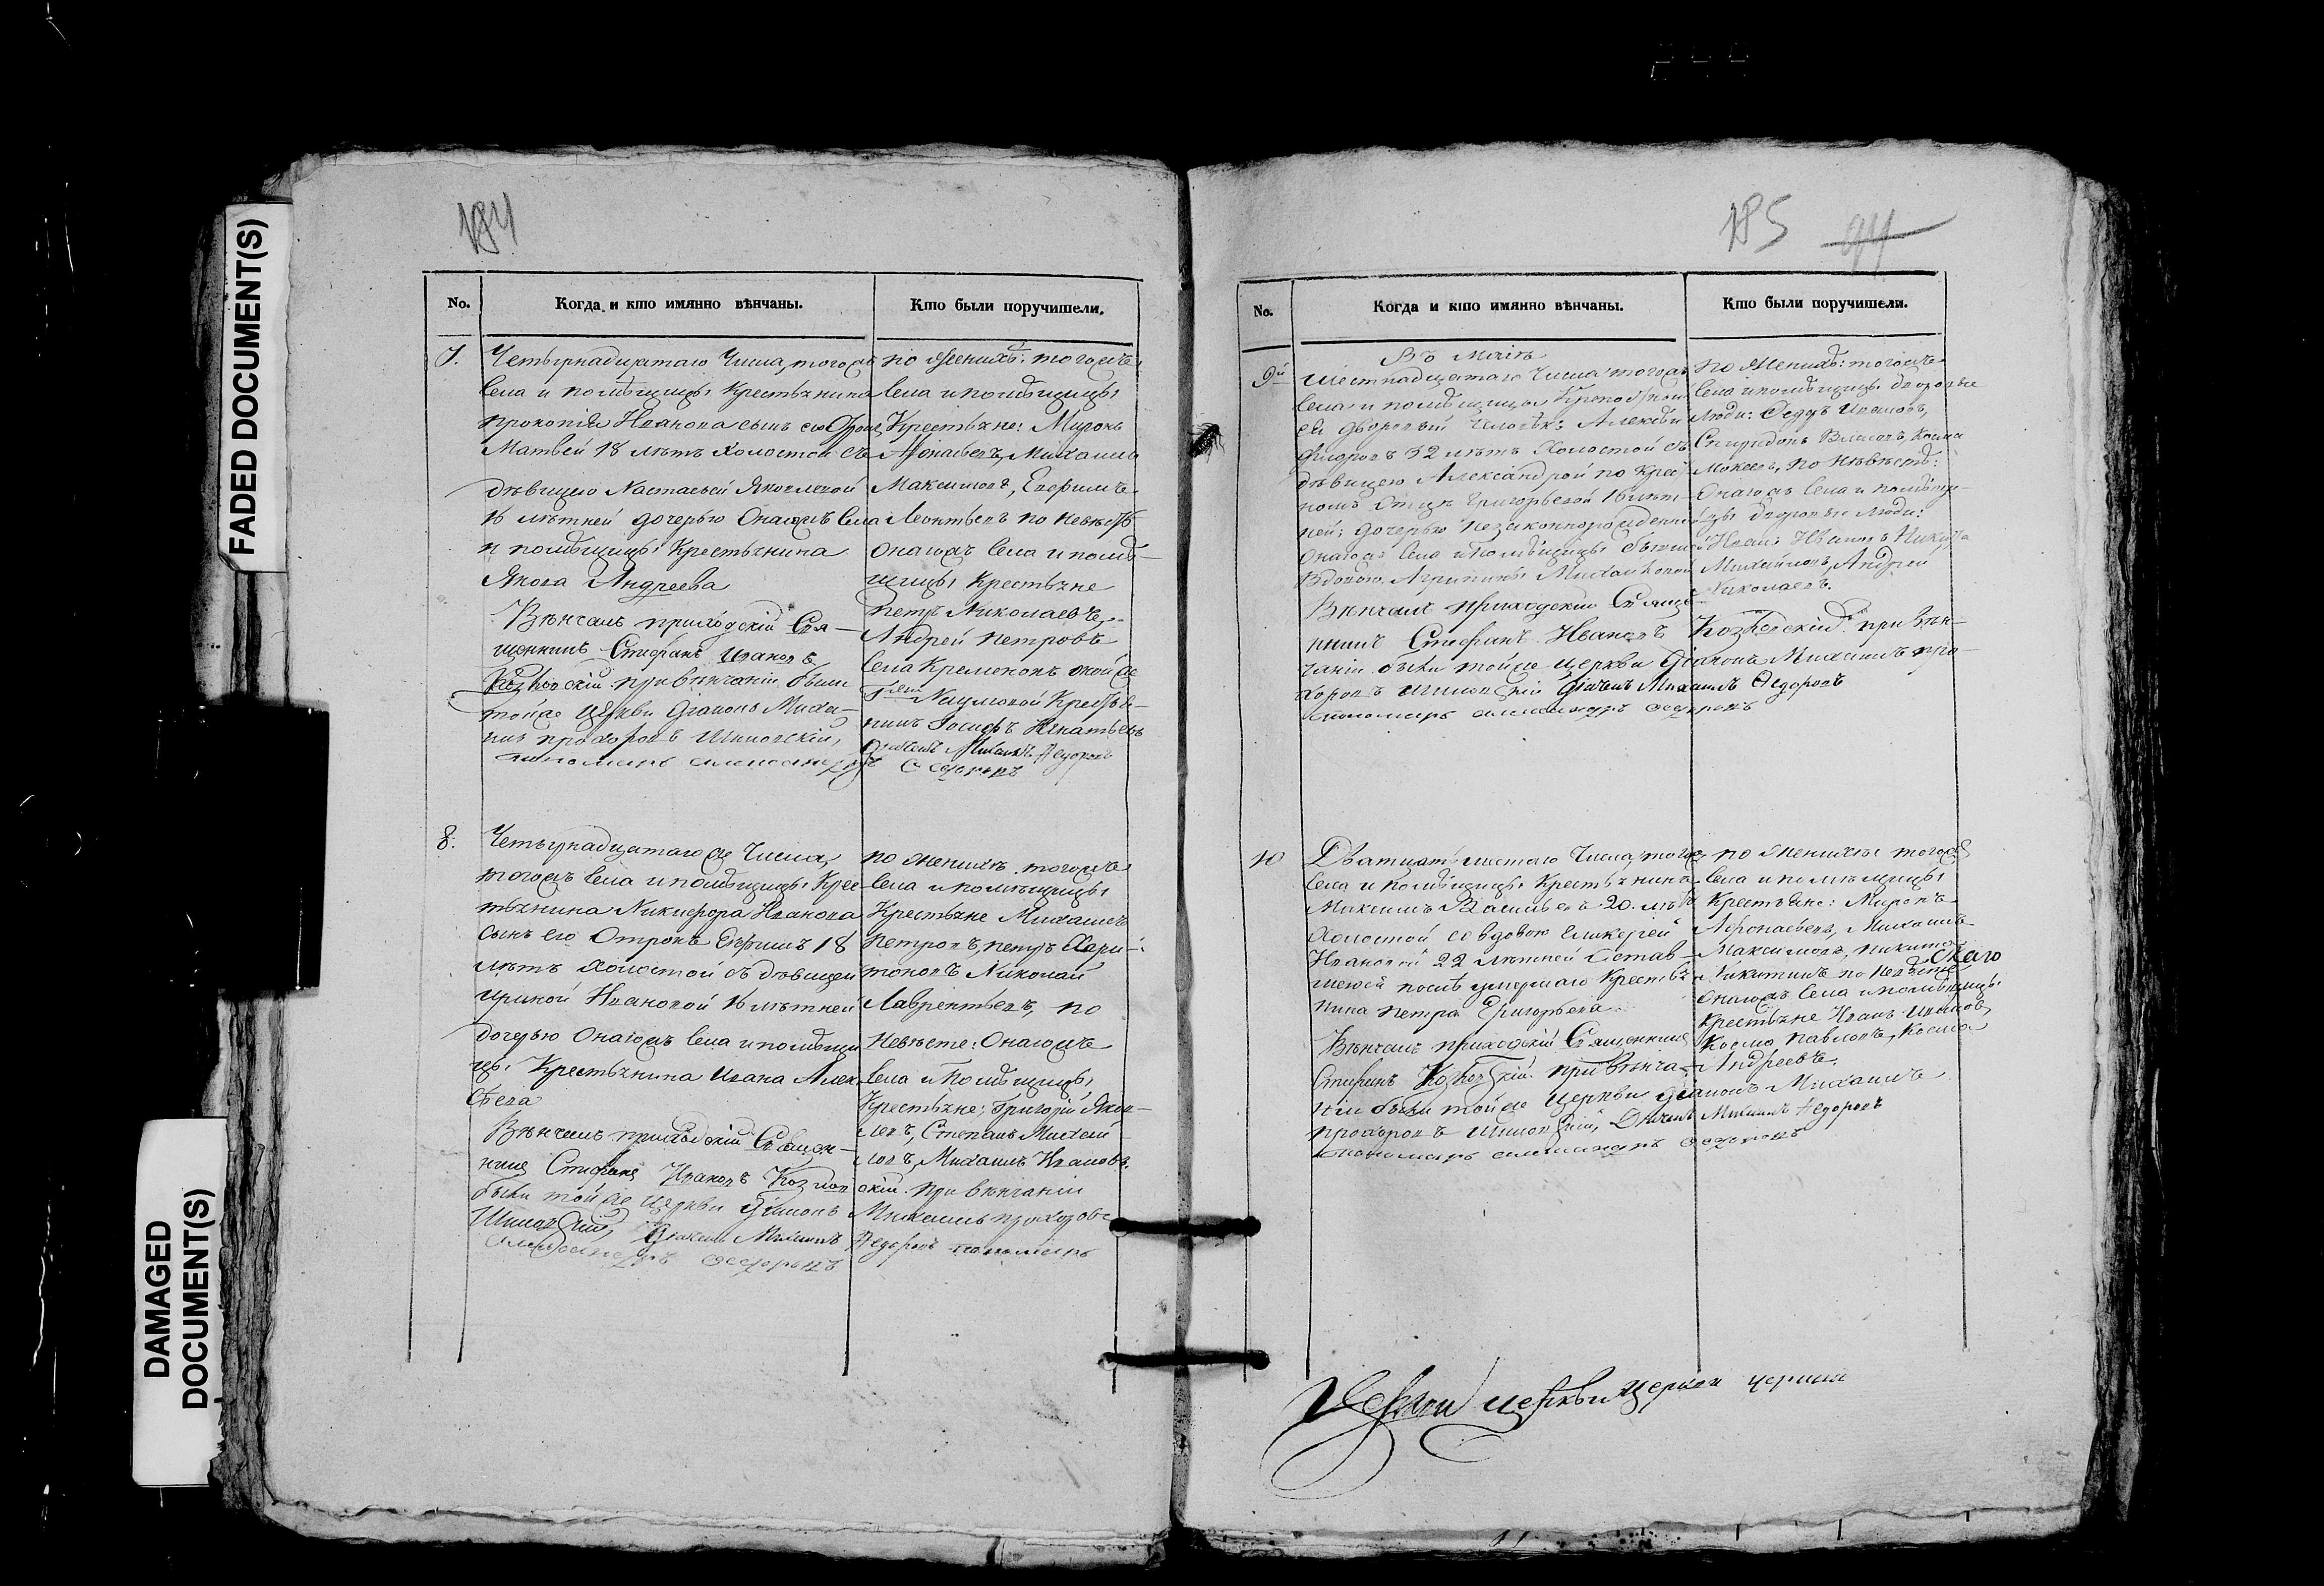 FADED DOCUMENT(S)
DAMAGED
DOCUMENT(S)
184
No.
Когда и кто имянно вѣнчаны.
Кто были поручители.
7.
Четырнадцатаго Числа, тогожъ
села и помѣщицы Крестьянина
Прокопія Иванова сынъ его
Матвей 18 лѣтъ холостой съ
дѣвицею Настасьей Яковлевой
16 лѣтней дочерью Онагожъ села
и помѣщицы Крестьянина
Якова Андреева
Вѣнчалъ приходскій Свя-
щенникъ Стефанъ Ивановъ
при вѣнчаніи были
тойже Церкви Діаконъ Миха-
илъ Прохоровъ
пономарь Александръ Федоровъ
по женихѣ: тогожъ
села и помѣщицы
Крестьяне: Миронъ
Афонасьевъ, Михаилъ
Максимовъ, Ефимъ
Леонтьевъ по невѣстѣ
онагожъ села и помѣ-
щицы Крестьяне
Петръ Николаевъ,
Андрей Петровъ
села
Наумовой Крестья-
нинъ Іосифъ Игнатьевъ
Михаилъ Федоровъ
8.
Четырнадцатагоже Числа,
тогожъ села и помѣщицы Крес-
тьянина Никифора Иванова
сынъ его Отрокъ Ефимъ 18
лѣтъ холостой съ дѣвицей
Ириной Ивановой 16 лѣтней
дочерью Онагожъ села и помѣщи
цы Крестьянина Ивана Алек-
сѣева
Вѣнчалъ приходскій Священ-
никъ Стефанъ Ивановъ
были тойже Церкви Діаконъ
Михаилъ
Александръ Федоровъ
по женихѣ тогожъ
села и помѣщицы
Крестьяне Михаилъ
Петровъ, Петръ Хари-
тоновъ Николай
Лаврентьевъ, по
Невѣсте: Онагожъ
села и Помѣщицы
Крестьяне: Григорій Яков-
левъ, Степанъ Михай-
ловъ, Михаилъ Ивановъ.
скій. при вѣнчаніи
Михаилъ Прохоровъ
Федоровъ пономарь
185 94
No.
Когда и кто имянно вѣнчаны.
Кто были поручители.
9й
Шестнадцатаго Числа тогожъ
села и помѣщицы
дворовый человѣкъ: Алексѣй
32 лѣтъ холостой съ
дѣвицею Александрой по крес
номъ Отцѣ Григорьевой 16 лѣт-
ней: дочерью незаконнорожденн
Онагожъ села и помѣщицы
вдовою Агрипины Михайловой
Вѣнчалъ приходскій Свяще-
никъ Стефанъ Ивановъ при вѣн-
чаніи были тойже Церкви Діаконъ Михаилъ Про-
хоровъ Михаилъ Федоровъ
пономарь Александръ Федоровъ
по женихѣ: тогожъ
села и помѣщицы дворовые
люди: Федръ Ивановъ,
Спиридонъ Власовъ, Косма
Мокеевъ, по невѣстѣ:
Онагожъ села и помѣщи-
цы дворовые люди:
Иванъ Ивановъ Никита
Михайловъ, Андрей
Николаевъ.
10
Двадцать шестаго Числа, тогожъ
села и помѣщицы Крестьянинъ
Максимъ Васильевъ 20. лѣтъ
холостой со вдовою Гликерией
Ивановой 22 лѣтней Остав-
шеюся послѣ умершаго Крестья
нина Петра Григорьева
Вѣнчалъ приходскій Священникъ
Стефанъ при вѣнча-
ніи были тойже Церкви Діаконъ Михаилъ
Прохоровъ Михаилъ Федоровъ
пономарь Александръ Федоровъ
по женихѣ тогожъ
села и помѣщицы
Крестьяне: Миронъ
Афонасьевъ, Михаилъ
Максимовъ, Никита
Никитинъ по невѣсте
Онагожъ села и помѣщицы
Крестьяне Иванъ Ивановъ,
Косма Павловъ, Косма
Андреевъ.
церкви